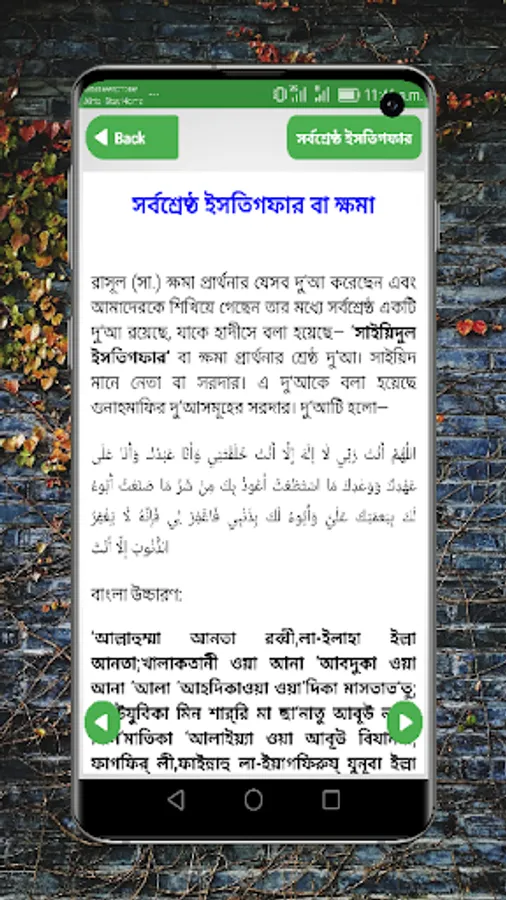 11:4 a.m.
Back
সর্বশ্রেষ্ঠ ইসতিগফার
সর্বশ্রেষ্ঠ ইসতিগফার বা ক্ষমা
রাসূল (সা.) ক্ষমা প্রার্থনার যেসব দু'আ করেছেন এবং
আমাদেরকে শিখিয়ে গেছেন তার মধ্যে সর্বশ্রেষ্ঠ একটি
দু'আ রয়েছে, যাকে হাদীসে বলা হয়েছে– 'সাইয়িদুল
ইসতিগফার' বা ক্ষমা প্রার্থনার শ্রেষ্ঠ দু'আ। সাইয়িদ
মানে নেতা বা সরদার। এ দু'আকে বলা হয়েছে
গুনাহমাফির দু'আসমূহের সরদার। দু'আটি হলো–
اللَّهُمَّ أَنْتَ رَبِّي لَا إِلَهَ إِلَّا أَنْتَ خَلَقْتَنِي وَأَنَا عَبْدُكَ وَأَنَا عَلَى
عَهْدِكَ وَوَعْدِكَ مَا اسْتَطَعْتُ أَعُوذُ بِكَ مِنْ شَرِّ مَا صَنَعْتُ أَبُوءُ
لَكَ بِنِعْمَتِكَ عَلَيَّ وَأَبُوءُ لَكَ بِذَنْبِي فَاغْفِرْ لِي فَإِنَّهُ لَا يَغْفِرُ
الذُّنُوبَ إِلَّا أَنْتَ
বাংলা উচ্চারণ:
'আল্লাহুম্মা আনতা রব্বী,লা-ইলাহা ইল্লা
আনতা;খালাকতানী ওয়া আনা 'আবদুকা ওয়া
আনা 'আলা 'আহদিকাওয়া ওয়া'দিকা মাসতাত'তু;
উযুবিকা মিন শার্‌রি মা ছা'নাতু আবূউ
মাতিকা 'আলাইয়্যা ওয়া আবূউ
ফাগফির্ লী,ফাইন্নাহু লা-ইয়াগফিরুয্ যুনূবা ইল্লা